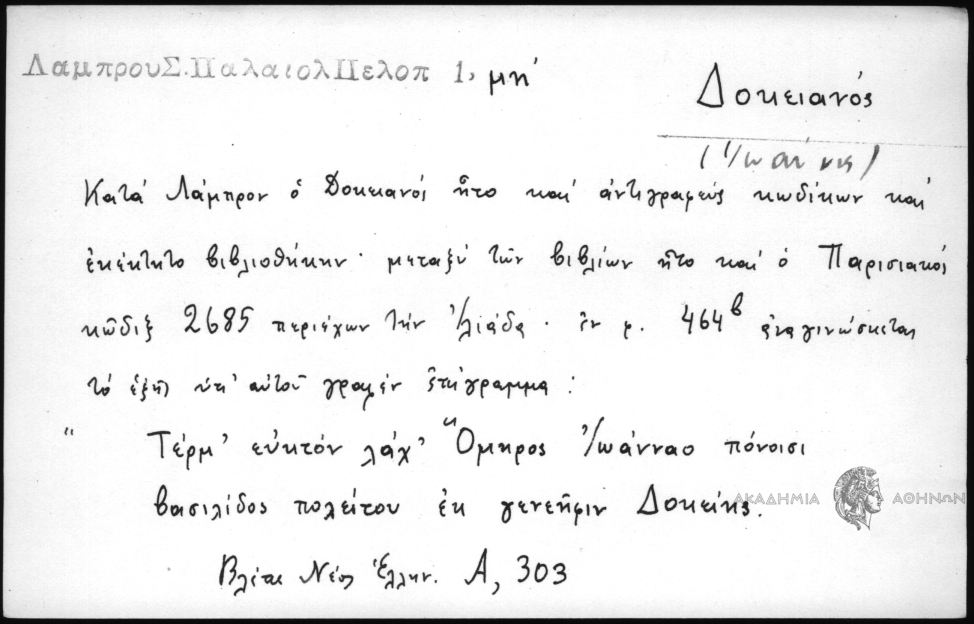 ΛαμπρουΣ.ΠαλαιολΠελοπ 1, μη'
Δοκειανός
(Ἰωάννης)
Κατά Λάμπρον ὁ Δοκειανός ἦτο καί ἀντιγραφεύς κωδίκων καί
ἐκέκτητο βιβλιοθήκην · μεταξύ τῶν βιβλίων ἦτο καί ὁ Παρισιακός
κῶδιξ 2685 περιέχων τήν Ἰλιάδα · ἐν φ. 464β ἀναγινώσκεται
τό ἑξῆς ὑπ' αὐτοῦ γραφέν ἐπίγραμμα :
" Τέρμ' εὐκτόν λάχ' Ὅμηρος Ἰωάνναο πόνοισι
βασιλίδος πολείτου ἐκ γενεῆφιν Δοκείης.
Βλέπε Νέος Ἑλλην. Α, 303
ΑΚΑΔΗΜΙΑ ΑΘΗΝΩΝ